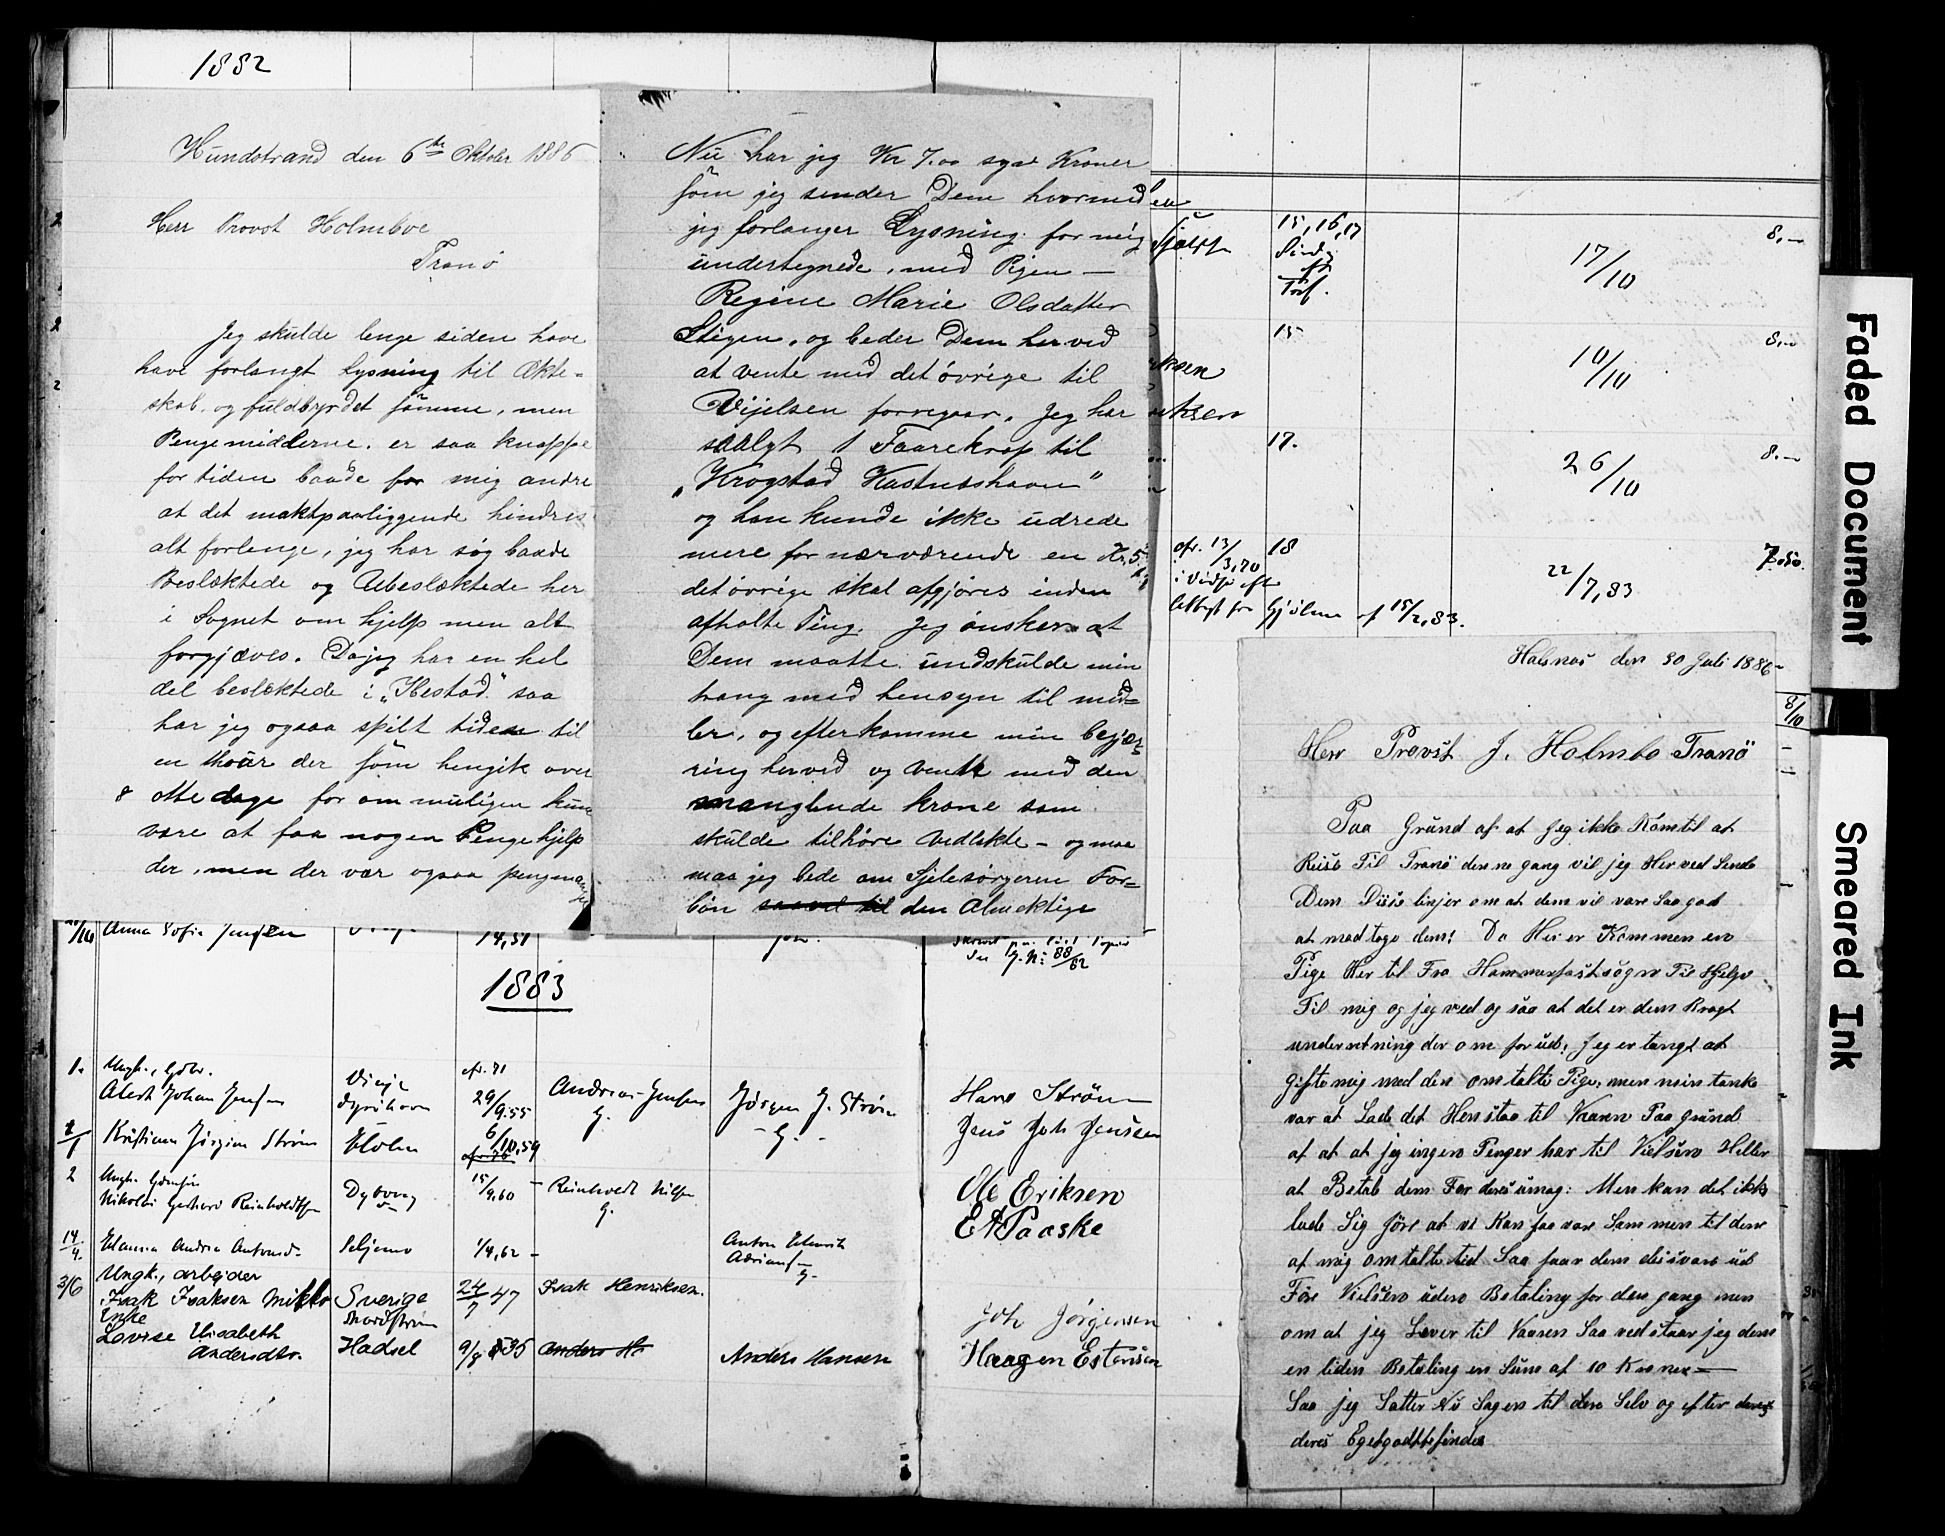 1882
Hundstrand den 6te Oktober 1886
Herr Provst Holmboe
Tranö
Jeg skulde lenge siden have
have forlangt Lysning til Ækte-
skab, og fuldbyrdet samme, men
Pengemidlerne, er saa knappe
for tiden baade for mig andre
at det maktpaaliggende hindres
alt forlenge, jeg har søg baade
Beslæktede og Ubeslæktede her
i Sognet om hjelp men alt
forgjæves. Da jeg har en hel
del beslæktede i „Ibestad" saa
har jeg ogsaa spilt tiden til
en thour der som hengik over
8 otte dage for om muligen kune
være at faa nogen Pengehjelp
der, men der var ogsaa
Nu har jeg Kr 7.00 syv Kroner
som jeg sender Dem hvormed
jeg forlanger Lysning for mig
undertegnede, med Pigen —
Regine Marie Olsdatter
Stigen, og beder Dem herved
at vente med det övrige til
Vijelsen forregaar. Jeg har
saalgt 1 Faarekrop til
„Krogstad Kastnæshavn"
og han kunde ikke udrede
mere for nærværende en Kr. 5
det övrige skal afgjöres inden
afholte Ting. Jeg önsker at
Dem maatte undskulde min
trang med hensyn til mid=
ler, og efterkomme min begjæ-
ring herved og vente med den
manglende krone som
skulde tilhöre Vedlekte - og maa
maa jeg bede om Sjelesörgeren For=
bön saavel til den Almektige
15, 16, 17
17/10
8.—
15
10/10
8.—
17.
26/10
8.—
cfr. 13/3,70
18
22/7,83
7.50.
15/2,83.
8/10
Halsnæs den 30 Juli 1886
Herr Provst J. Holmbo Tranö
Paa Grund af at jeg ikke Komtil at
Reise Til Tranö denne gang vil jeg Herved Sende
Dem Disse linjer om at dem vil vare Saa god
at modtage dem! Da Her er Kommen en
Pige Her til Fra Hammerfestsögn Til Hjelp
Til mig og jeg ved og saa at det er dem Bragt
underretning der om forud; Jeg er tængt at
Gifte mig med den omtalte Pige, men min tanke
var at Lade det Henstaa til Vaaren Paa grund
af at at jeg ingen Penger har til Vielsen Heller
at Betale dem For deres umag: Men kan det ikke
lade Sig Jöre at vi Kan faa vare Sammen til den
af mig omtalte tid Saa faar dem desvære ud
Före Vielsen uden Betaling for den gang men
om at jeg Lever til Vaaren Saa vedstaar jeg dem
en liden Betaling en Sum af 10 Kroner —
Saa jeg Satter Nu Sagen til den Selv og efter deres
deres Egetgodtbefindes
Anna Sofie Jensen
14,51
88/82
1883
1.
Ungk., Gbr.
Albert Johan Jensen
Dyrøhavn
cfr. 71
29/9.55
Andreas Jensen
G.
Jörgen J. Ström
- G. -
Hans Ström
Jens Joh Jenssen
1/1
Kristiane Jörgine Ström
6/10,59
2
Nikolai Gerhard Reinholdtsen
15/9.60
Reinholdt Nilsen
G.
Ole Eriksen
E A Paaske
14/4.
1/4,62 –
Anton Edvard
Adriansen
G.
3/6
Ungk., arbejder
Isak Isaksen Mikko
Sverige
24/7 47
Isak Henriksen.
Joh Jørgensen
Enke
Lovise Elisabeth
Andersdtr.
Hadsel
9/8 35
Anders Ha
Anders Hansen
Haagen Estensen
Faded Document
Smeared Ink